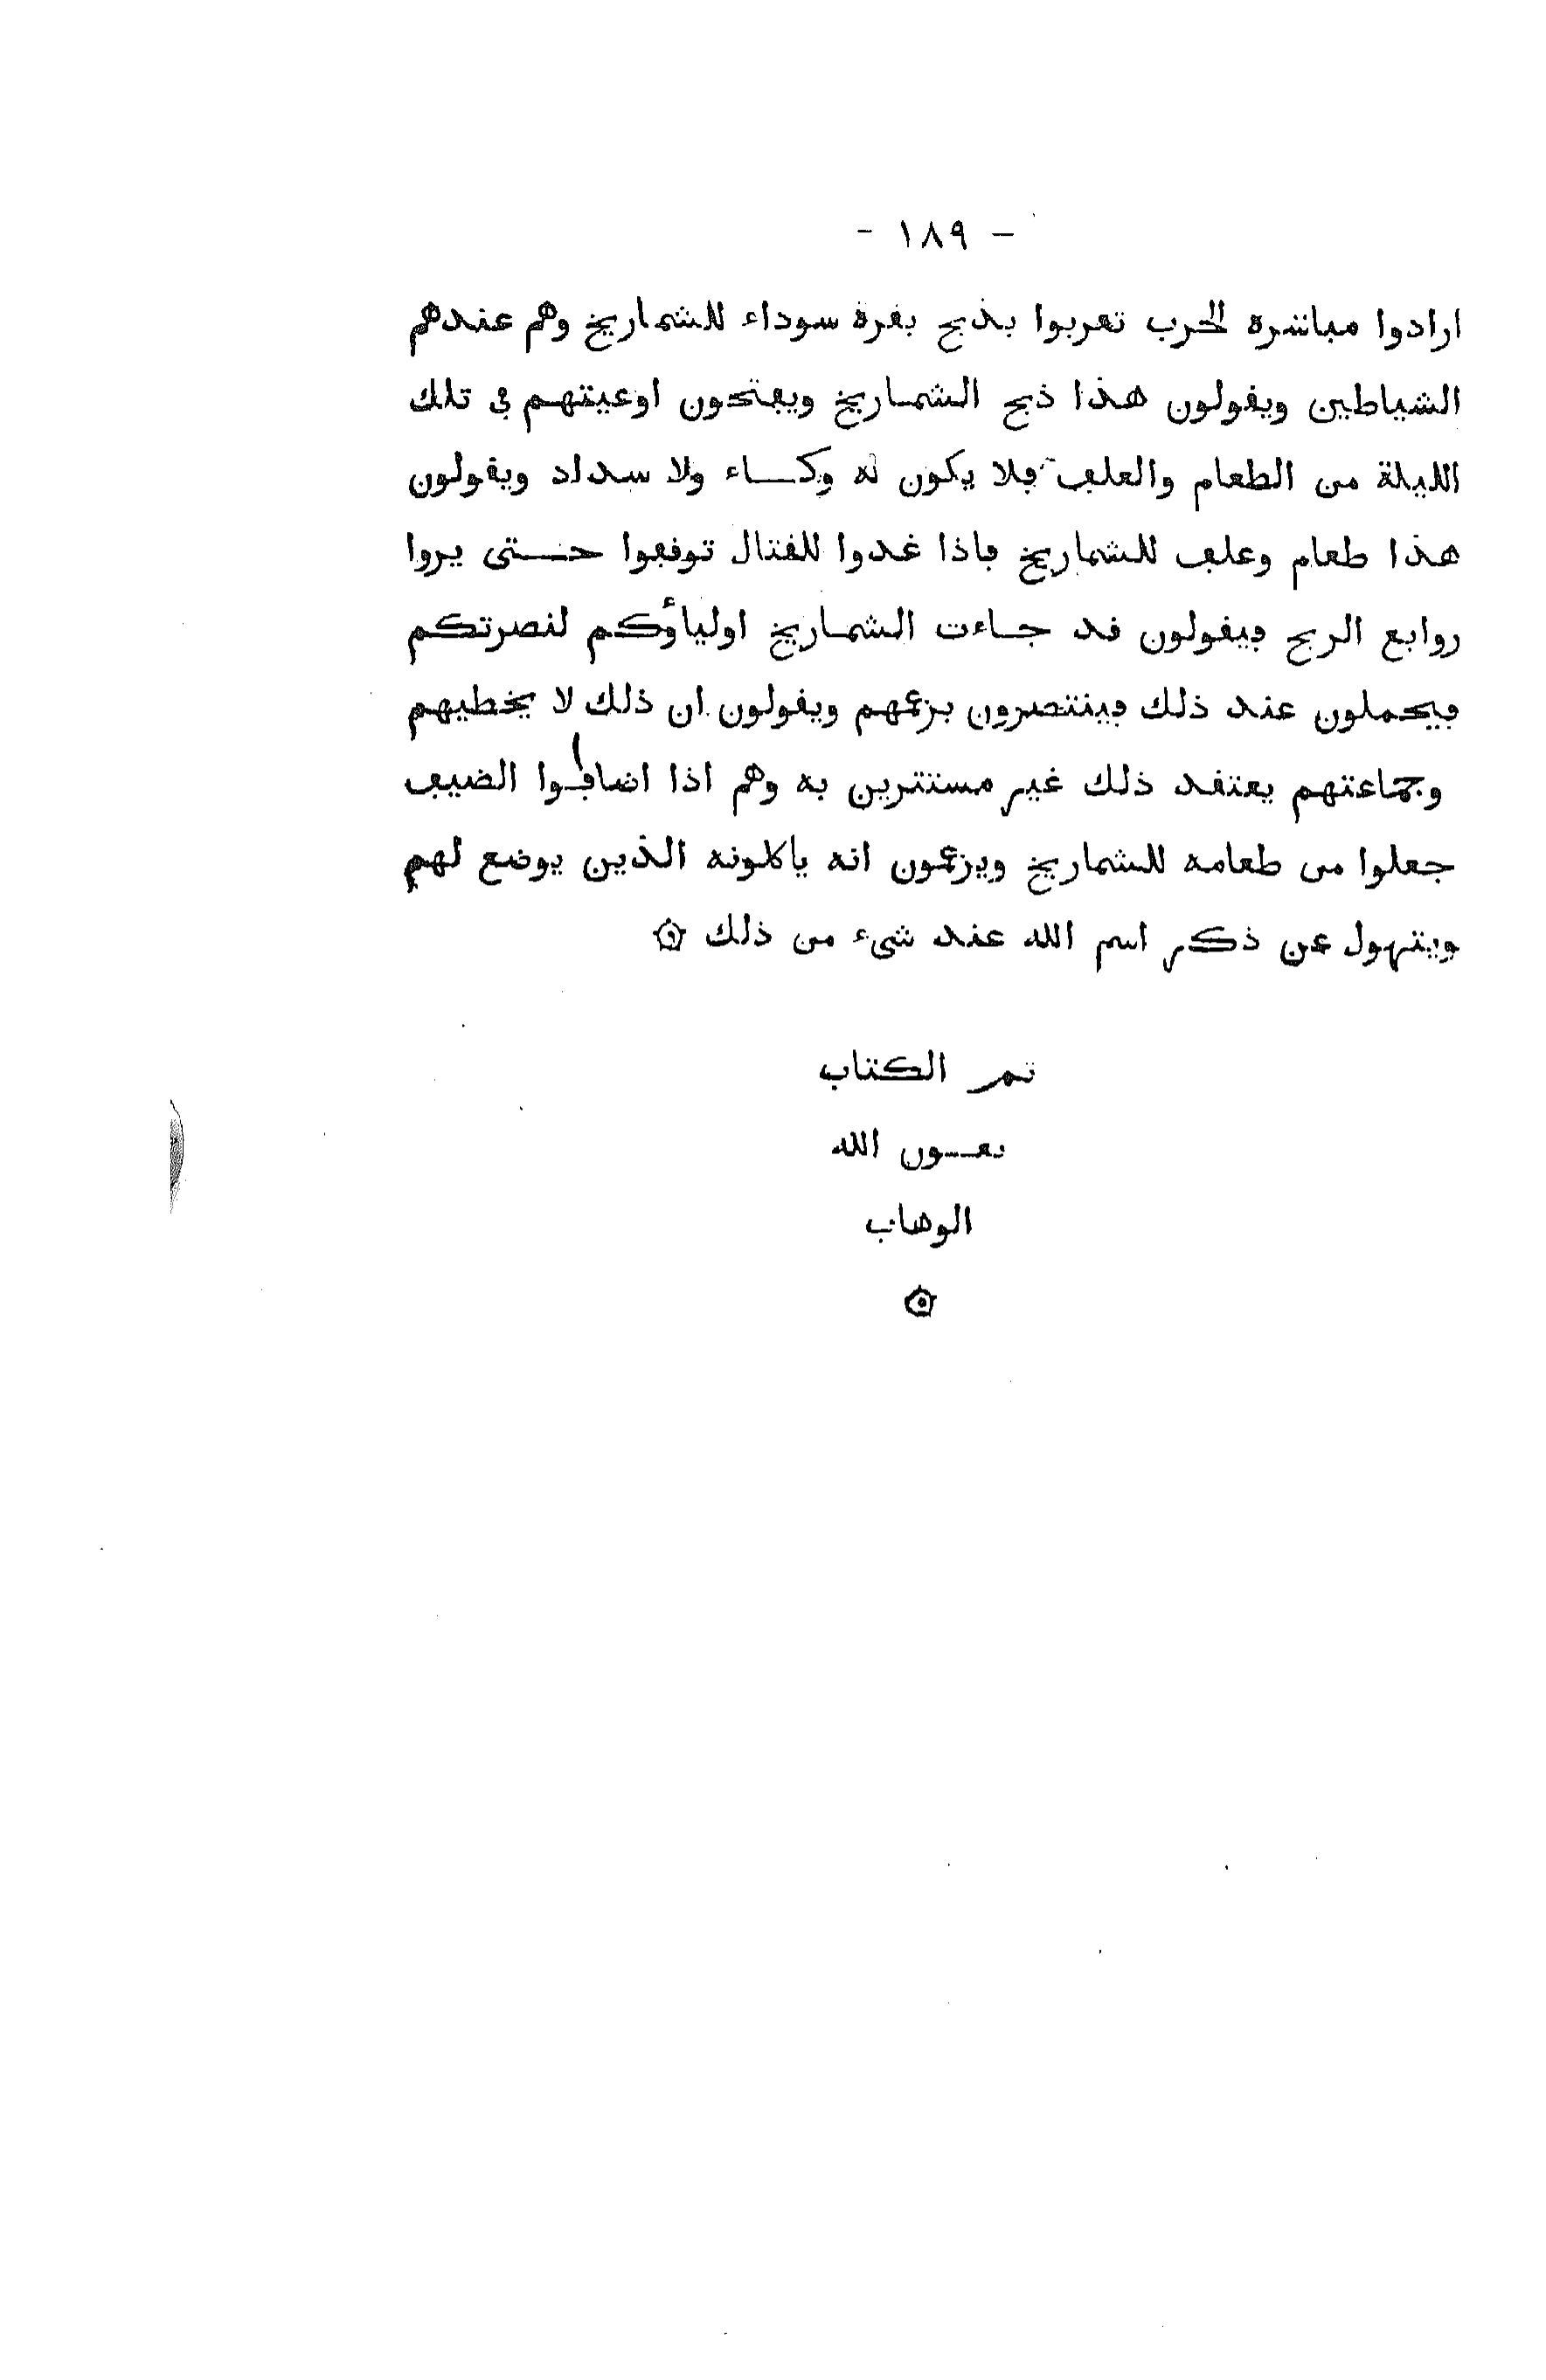 - ١٨٩ -
ارادوا مباشرة الحرب تقربوا بذبح بقرة سوداء للشماريخ وهم عندهم
الشياطين ويقولون هذا ذبح الشماريخ ويفتحون اوعيتهم في تلك
الليلة من الطعام والعلف فلا يكون له وكاء ولا سداد ويقولون
هذا طعام وعلف للشماريخ فاذا غدوا للقتال توقفوا حتى يروا
روابع الريح فيقولون قد جاءت الشماريخ اولياؤكم لنصرتكم
فيحملون عند ذلك فينتصرون بزعمهم ويقولون ان ذلك لا يخطيهم
وجماعتهم يعتقد ذلك غير مستترين به وهم اذا اضافوا الضيف
جعلوا من طعامه للشماريخ ويزعمون انه ياكلونه الذين يوضع لهم
ويتهول عن ذكر اسم الله عند شىء من ذلك
تم الكتاب
بعون الله
الوهاب